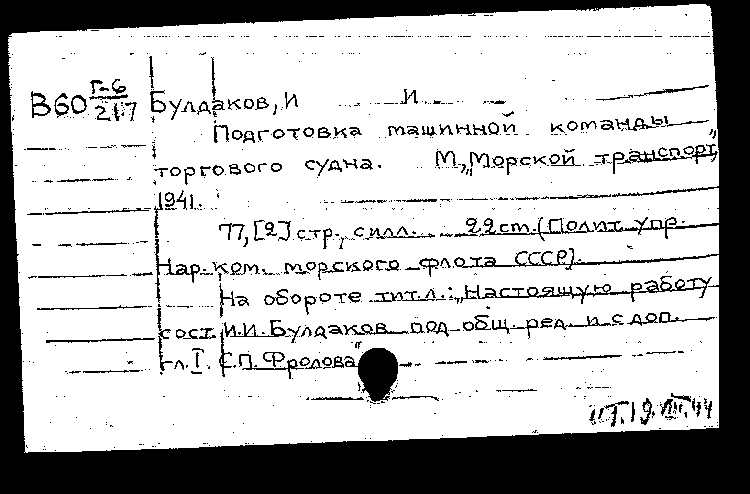 В60 Г-6/217 Булдаков, И И
Подготовка машинной команды
торгового судна. М, „Морской транспорт",
1941.
77, [2] стр., с илл. 22 ст. (Полит. упр.
Нар. ком. морского флота СССР).
На обороте тит. л.: „Настоящую работу
сост. И.И. Булдаков под общ. ред. и с доп.
гл. I. С.П. Фролова"
19.VIII.44